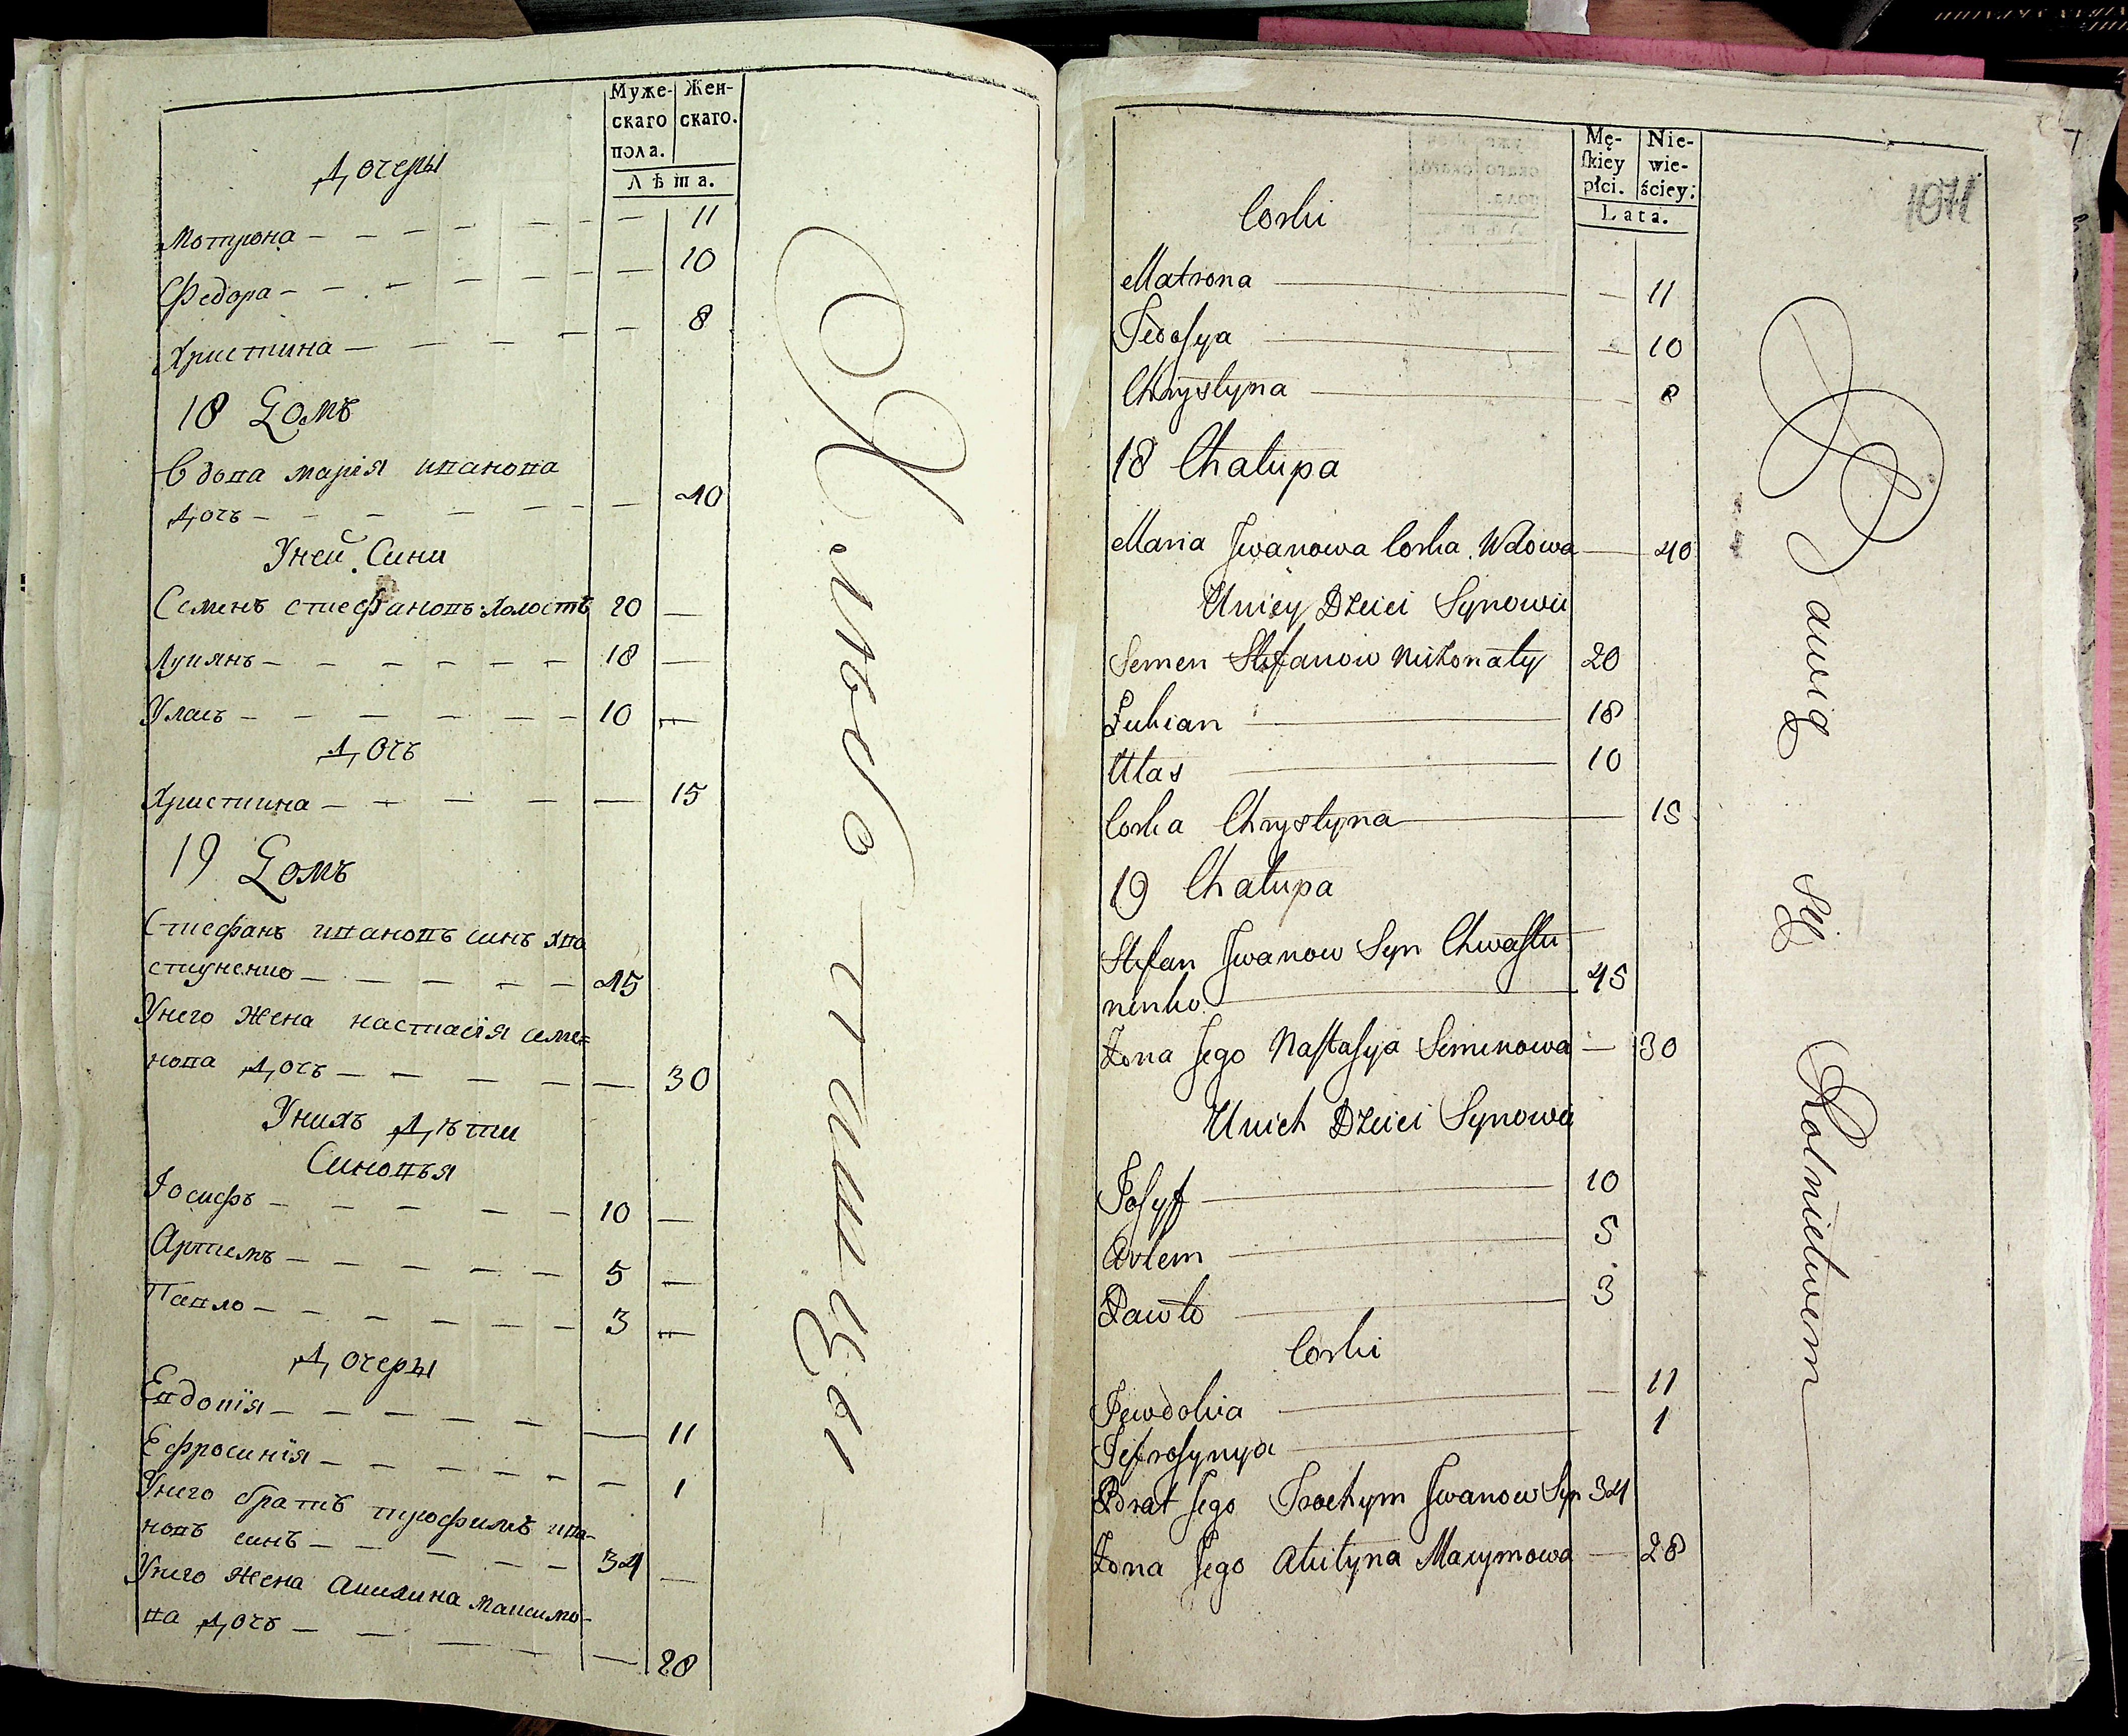 Муже-
скаго
пола.
Жен-
скаго.
Лѣта.
Дочеры
Мотрона — 11
Федора — 10
Христина — 8
18 Домъ
Вдова марія иванова
дочь — 40
Уней Сини
Семенъ стефановъ холостъ 20 —
Лукянъ — 18 —
Уласъ — 10 —
Дочъ
Христина — 15
19 Домъ
Стефанъ ивановъ синъ хва
стуненко — 45
Унего жена настасія семе=
нова дочъ — 30
Унихъ Дѣти
Синовья
Іосифъ — 10 —
Артемъ — 5 —
Павло — 3 —
Дочеры
Евдокія — 11
Ефросинія — 1
Унего братъ трофимъ ива-
новъ синъ — 34 —
Унего жена Акилина максимо-
ва дочъ — 28
Mę-
skiey
płci.
Nie-
wie-
ściey.
Lata.
1071
Corki
Matrona — 11
Fedosya — 10
Chrystyna — 8
18 Chałupa
Maria Jwanowa Corka Wdowa — 40
Uniey Dzieci Synowie
Semen Stefanow Nieżonaty 20
Łukian — 18
Ułas — 10
Corka Chrystyna — 15
19 Chałupa
Stefan Jwanow Syn Chwastu
nenko — 45
Żona Jego Nastasyja Semenowa — 30
Unich Dzieci Synowie
Josyf — 10
Artem — 5
Pawło — 3
Corki
Jewdokia — 11
Jefrosynya — 1
Brat Jego Trochym Jwanow Syn 34
Żona Jego Akilyna Maxymowa — 28
Bawią się Rolnictwem